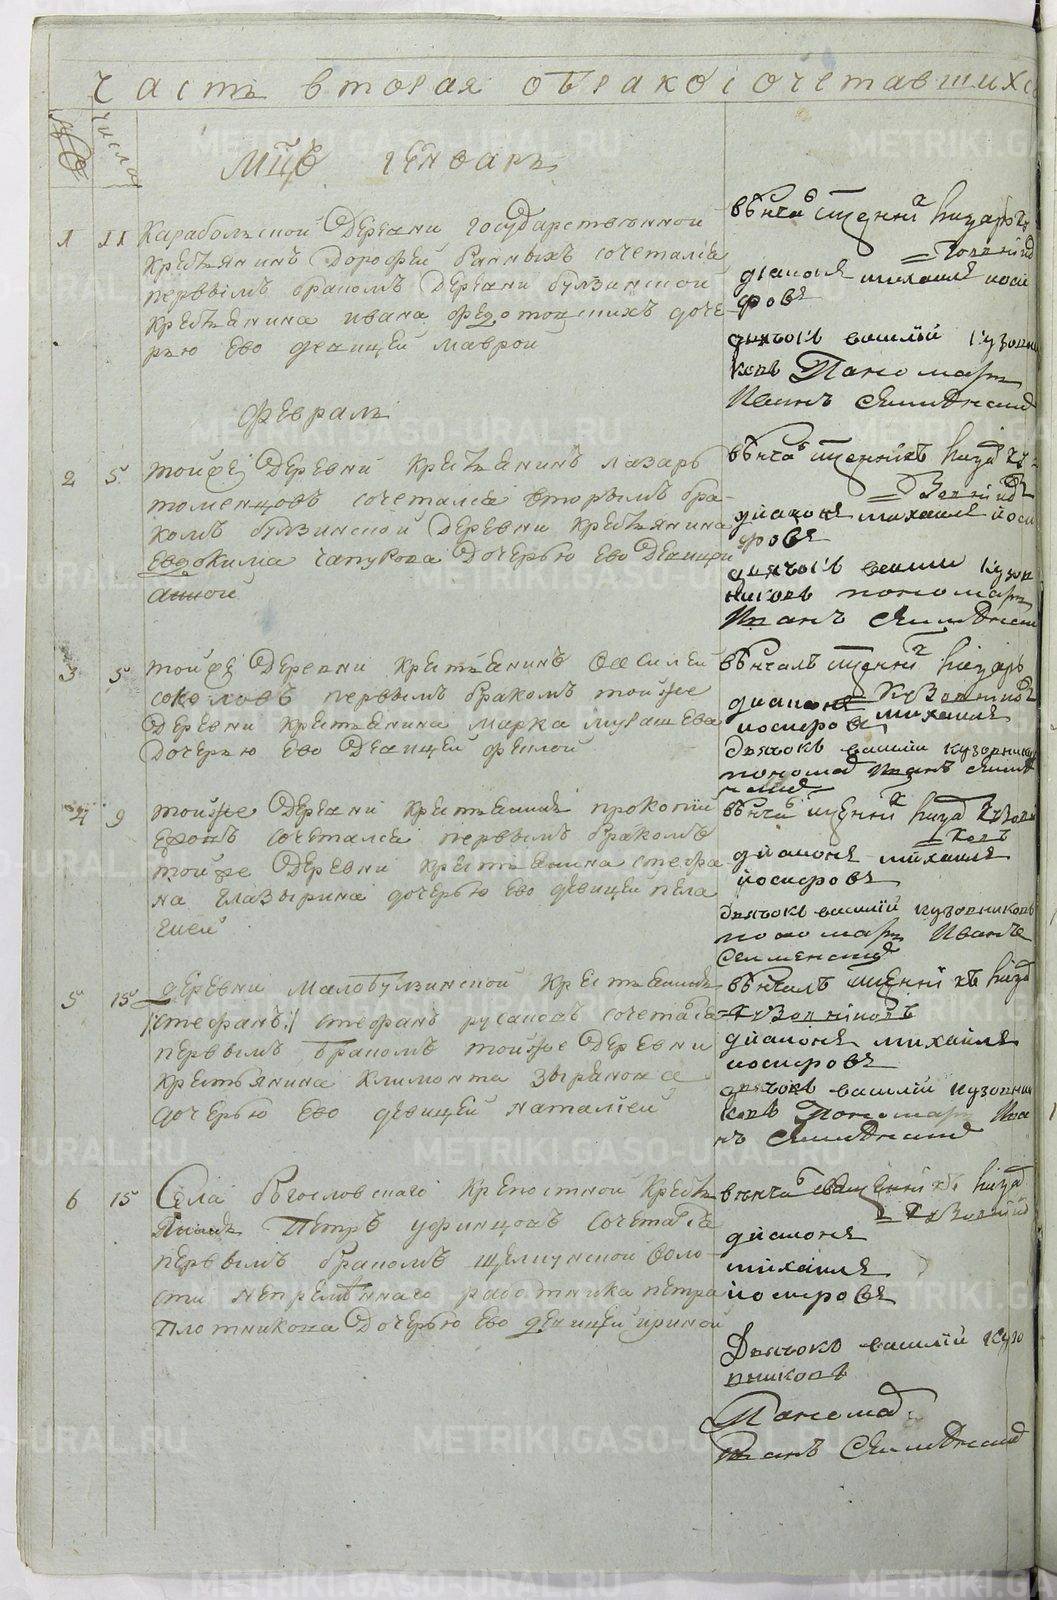 Часть вторая о бракосочетавшихся
числа
Мцъ генварь
1 11 Карабольской Деревни государственной
крестьянинъ Дорофей сочетался
первымъ бракомъ Деревни булзинской
крестьянина ивана доче
рью ево девицей маврой
венча священни назаръ
диаконъ михаилъ иоси
фовъ
дьячокъ василий кузовни
ковъ Пономарь
Иванъ
февраль
2 5 тойже Деревни крестьянинъ лазарь
сочетался вторымъ бра
комъ булзинской Деревни крестьянина
евдокима чапурова Дочерью ево Девицей
анной
венча священникъ
диаконъ михаилъ иоси
фовъ
дьячокъ васили кузов
никовъ пономарь
Иванъ
3 5 тойже Деревни крестьянинъ василей
соколовъ первымъ бракомъ тойже
Деревни крестьянина марка мурашева
Дочерью ево Девицей феклой
венчалъ священни назаръ
диаконъ михаилъ
иосифовъ
дьячокъ василий кузовник
пономар Иванъ
4 9 тойже Деревни крестьянинъ прокопий
сочетался первымъ бракомъ
тойже Деревни крестьянина стефа
на глазырина дочерью ево девицей пела
гией
венча священни
диаконъ михаилъ
иосифовъ
дьячокъ василий кузовниковъ
пономарь Иванъ
5 15 деревни малобулзинской крестьянинъ
/:стефанъ:/ стефанъ русановъ сочетался
первымъ бракомъ тойже Деревни
крестьянина климонта зырянова
дочерью ево девицей наталией
венчалъ священникъ
диаконъ михаилъ
иосифовъ
дьячокъ василий кузовни
ковъ Пономарь Ива
нъ
6 15 Села богословскаго крепостной кресть
янинъ Петръ уфинцовъ сочетался
первымъ бракомъ щелкунской воло
сти непременнаго работника петра
плотникова Дочерью ево девицей ириной
венча священникъ
диаконъ
михаилъ
иосифовъ
Дьячокъ василий кузо
вниковъ
Пономар
Иванъ
METRIKI.GASO-URAL.RU